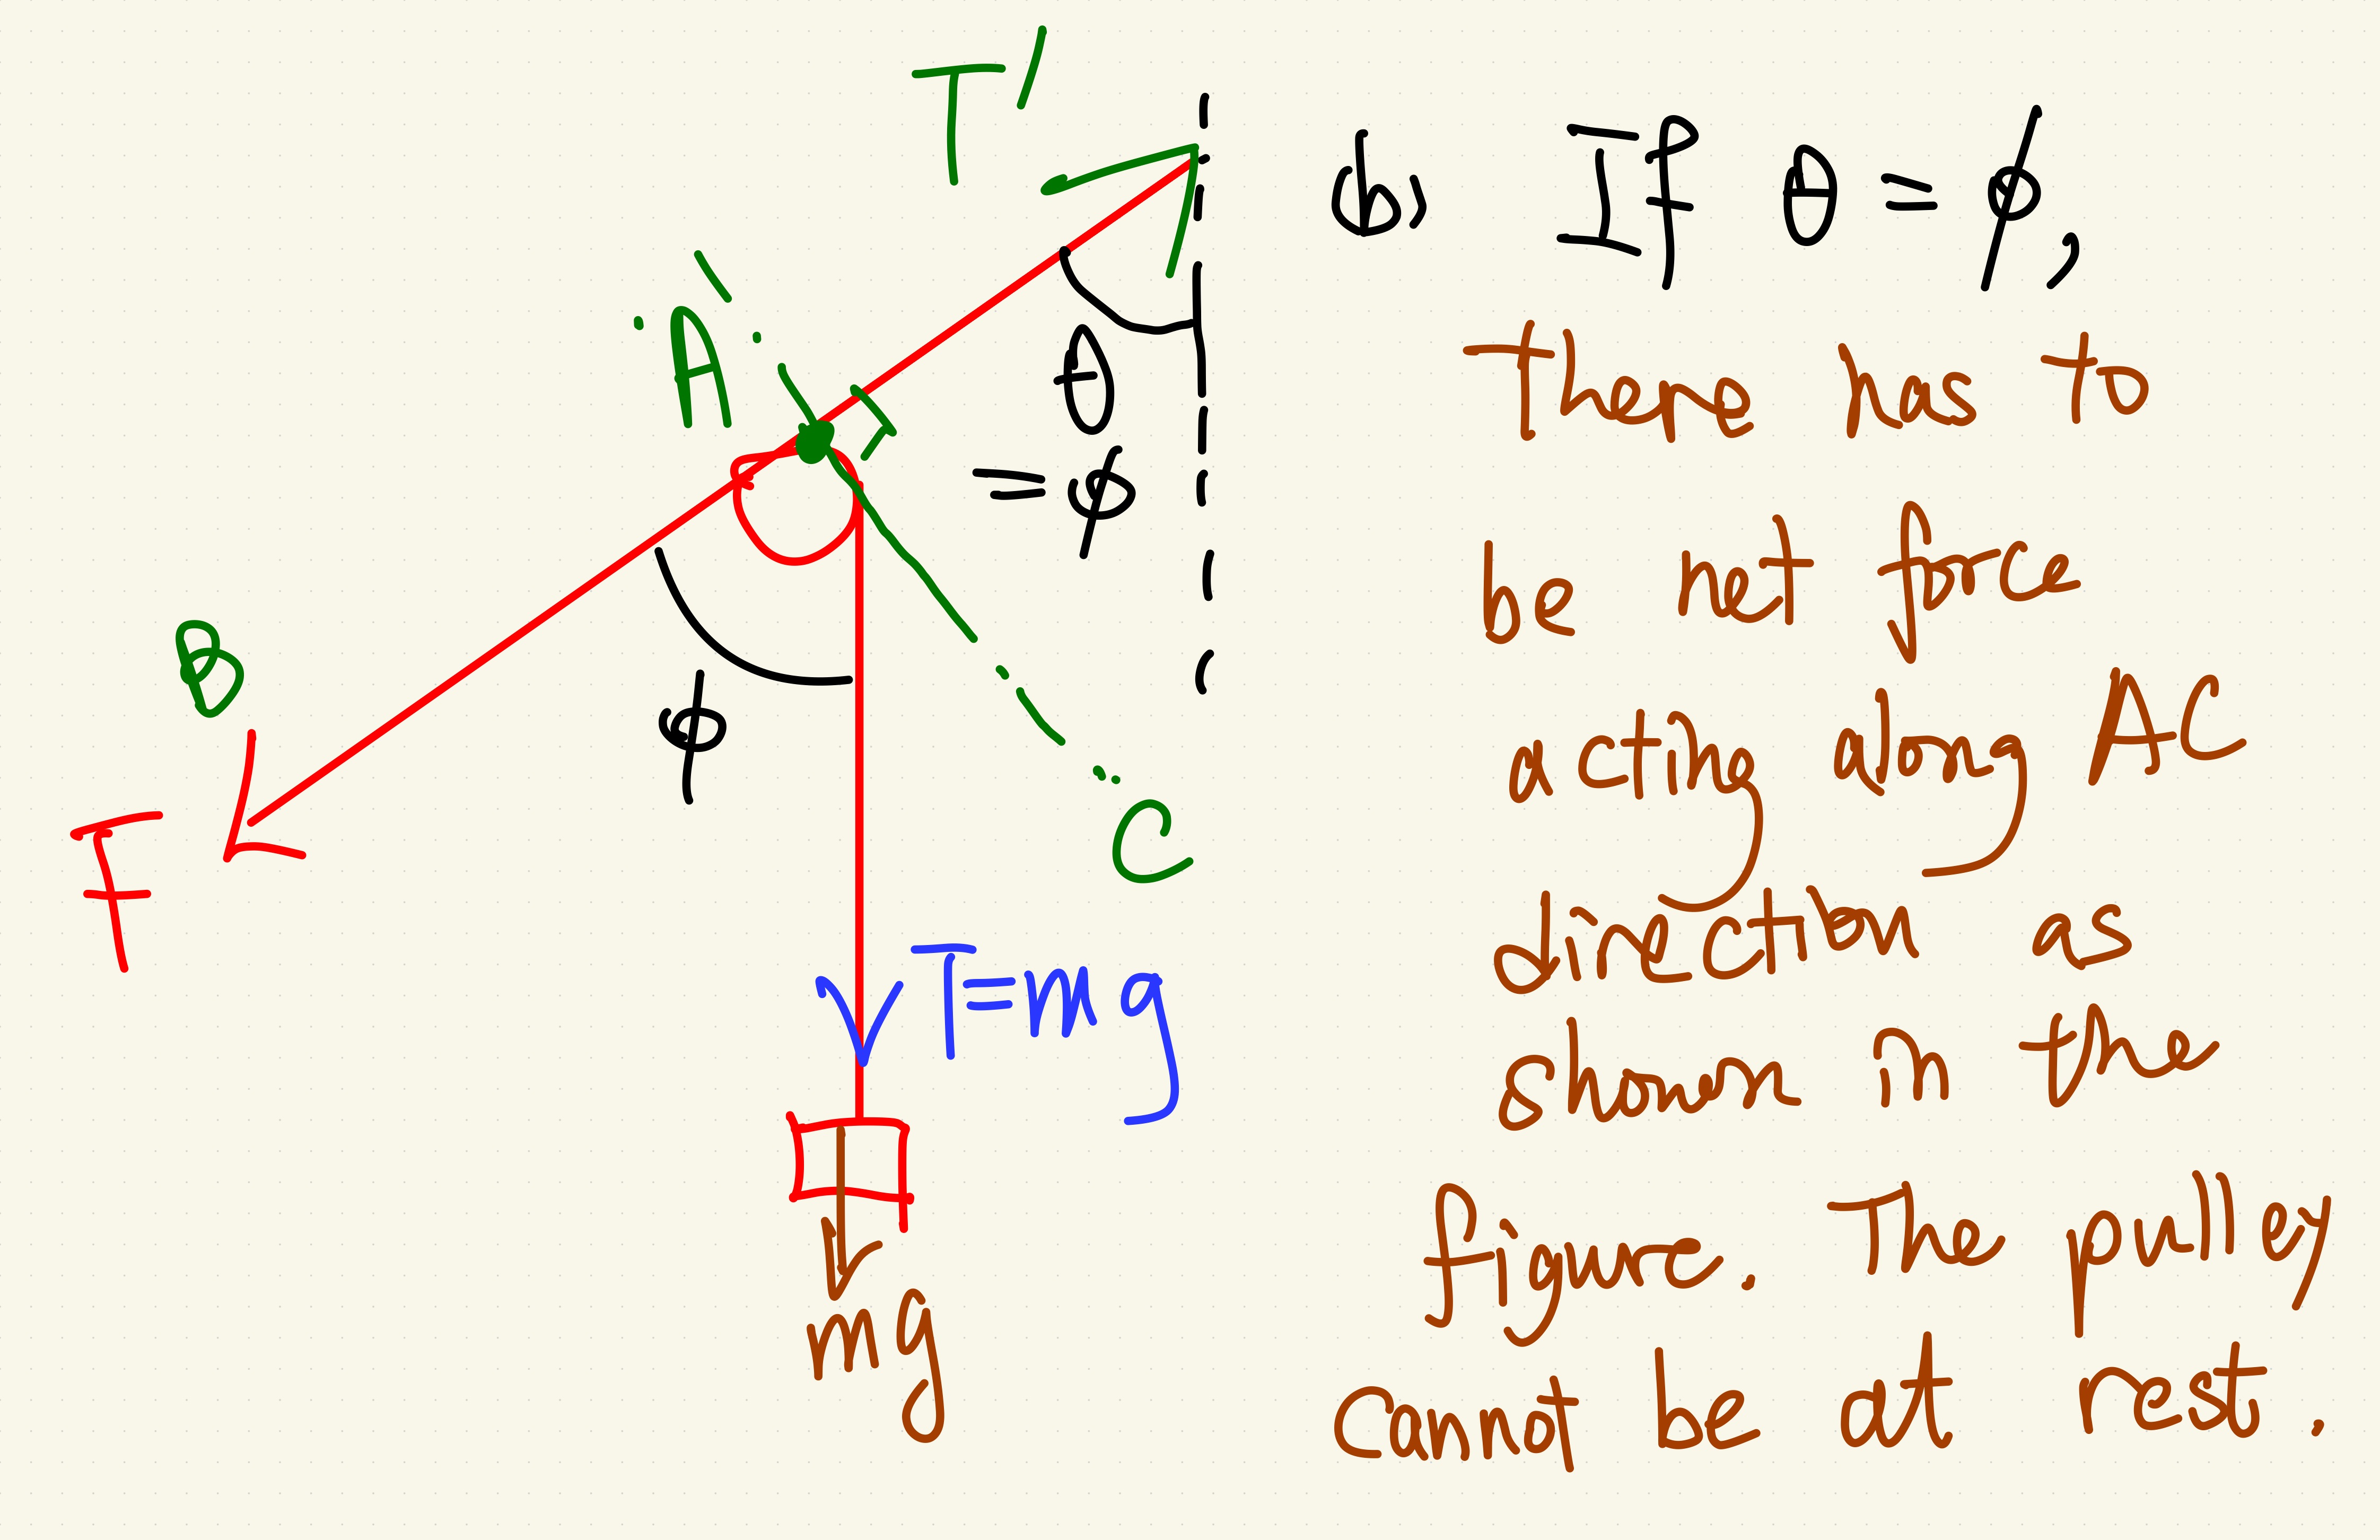 T'
A
θ
= ϕ
B
ϕ
F
C
T=mg
mg
(b) If θ = ϕ,
There has to
be net force
acting along AC
direction as
shown in the
figure. The pulley
cannot be at rest.